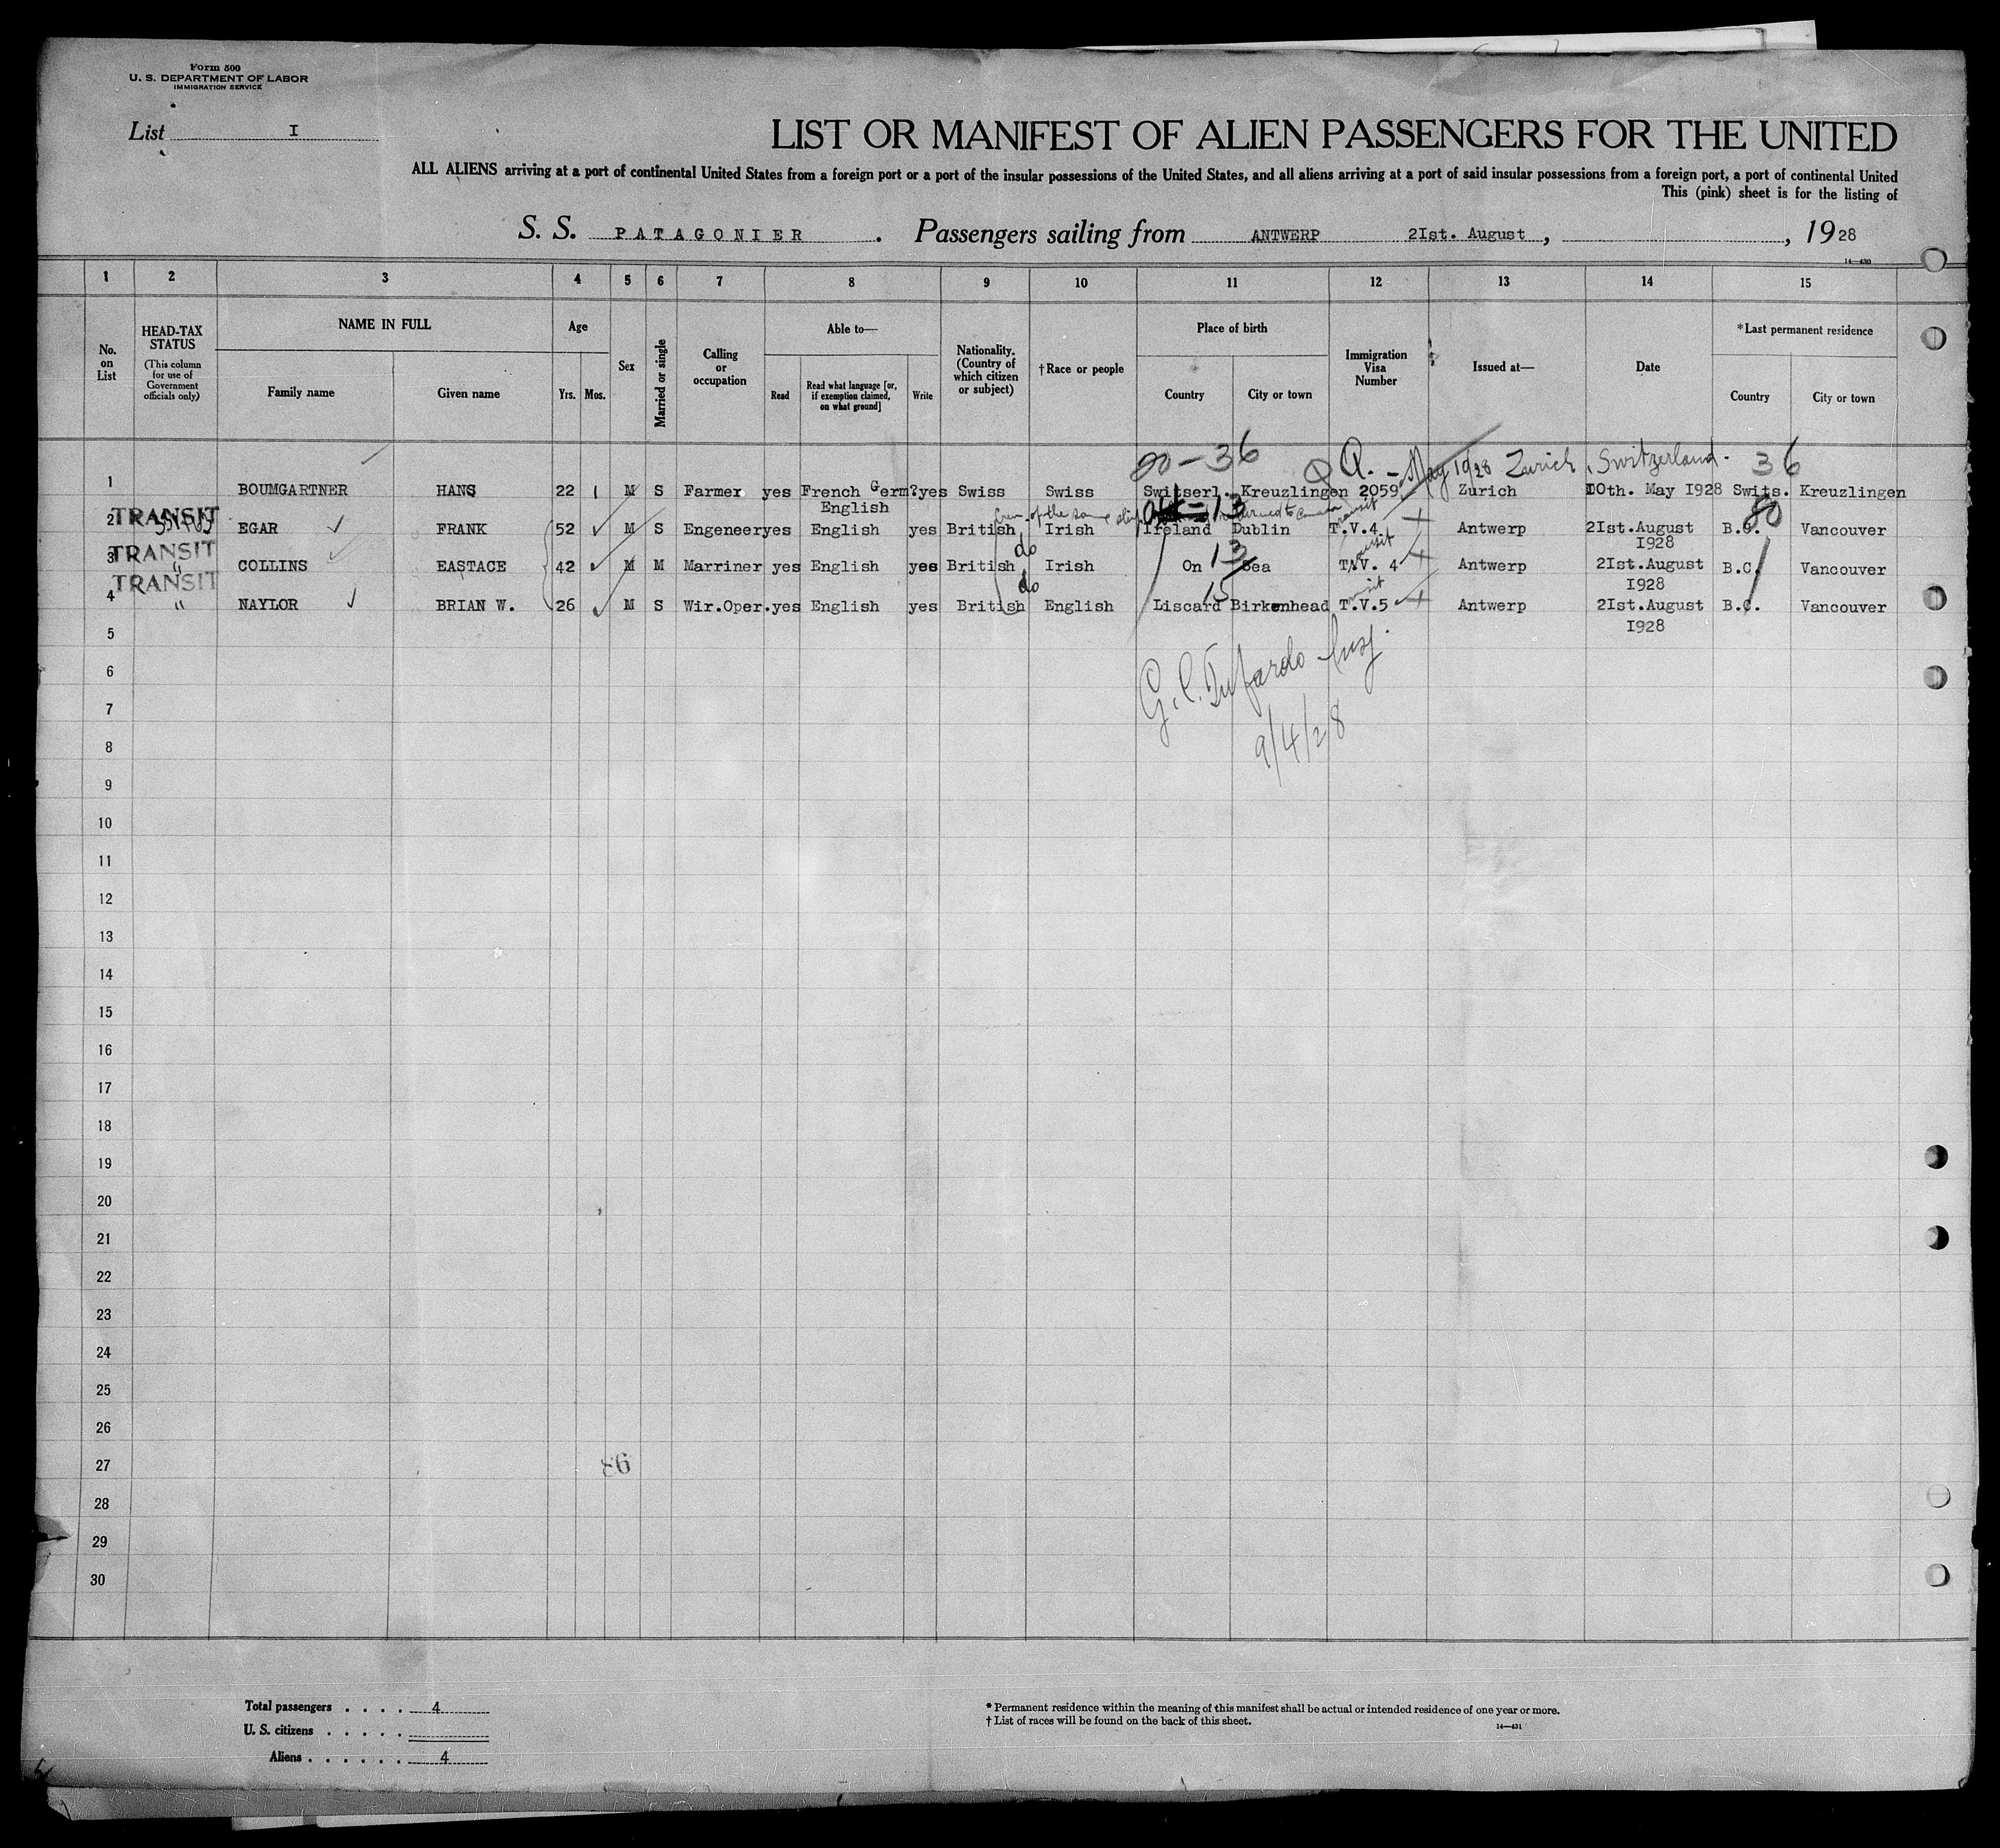 Form 500
U. S. DEPARTMENT OF LABOR
IMMIGRATION SERVICE
List I
LIST OR MANIFEST OF ALIEN PASSENGERS FOR THE UNITED
ALL ALIENS arriving at a port of continental United States from a foreign port or a port of the insular possessions of the United States, and all aliens arriving at a port of said insular possessions from a foreign port, a port of continental United
This (pink) sheet is for the listing of
S. S. PATAGONIER. Passengers sailing from ANTWERP 2Ist. August, , 1928
14—430
1 2 3 4 5 6 7 8 9 10 11 12 13 14 15
No. on List
HEAD-TAX STATUS
(This column for use of Government officials only)
NAME IN FULL
Family name
Given name
Age
Yrs. Mos.
Sex
Married or single
Calling or occupation
Able to—
Read
Read what language [or, if exemption claimed, on what ground]
Write
Nationality. (Country of which citizen or subject)
†Race or people
Place of birth
Country
City or town
Immigration Visa Number
Issued at—
Date
*Last permanent residence
Country
City or town
20-36 Q. - May 10/28 Zurich, Switzerland. 36
1 BOUMGARTNER HANS 22 M S Farmer yes French Germ? yes Swiss Swiss Switserl. Kreuzlingen 2059 Zurich I0th. May I928 Swits. Kreuzlingen
English
13 80
TRANSIT
2 EGAR FRANK 52 M S Engeneer yes English yes British Irish Ireland Dublin T.V.4 Antwerp 2Ist.August B.C. Vancouver
I928
TRANSIT do 13
3 " COLLINS EASTACE 42 M M Marriner yes English yes British Irish On Sea T.V. 4 Antwerp 2Ist.August B.C. Vancouver
I928
TRANSIT do 15
4 " NAYLOR BRIAN W. 26 M S Wir.Oper. yes English yes British English Liscard Birkenhead T.V.5 Antwerp 2Ist.August B.C. Vancouver
I928
5
6
7
9/4/28
8
9
10
11
12
13
14
15
16
17
18
19
20
21
22
23
24
25
26
27
28
29
30
Total passengers . . . . 4
U. S. citizens . . . . .
Aliens . . . . . . 4
* Permanent residence within the meaning of this manifest shall be actual or intended residence of one year or more.
† List of races will be found on the back of this sheet.
14—431